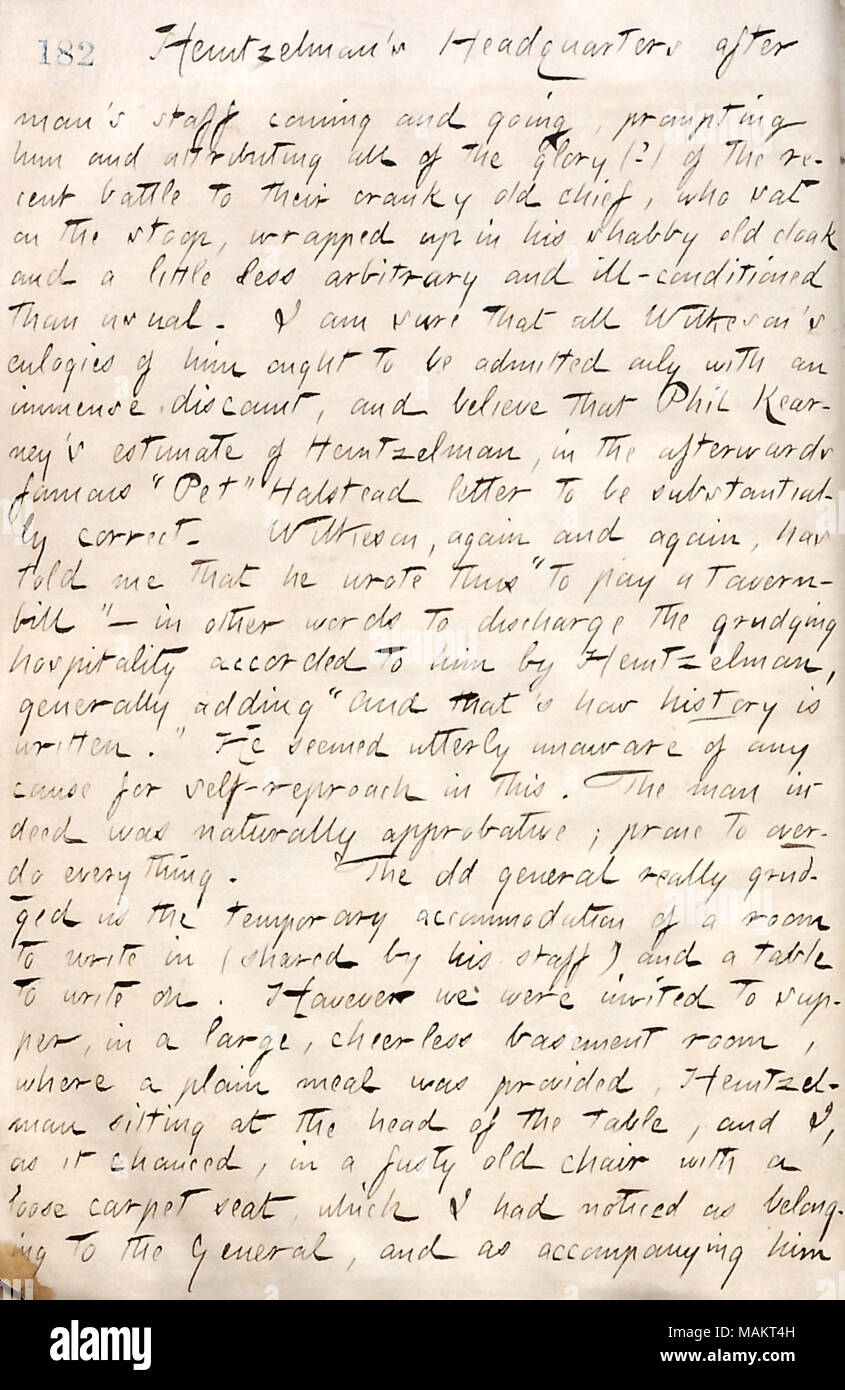 182 Heintzelman's Headquarters after
man's staff coming and going, prompting
him and attributing all of the glory (?) of the re-
cent battle to their cranky old chief, who sat
on the stoop, wrapped up in his shabby old cloak
and a little less arbitrary and ill-conditioned
than usual. I am sure that all Wilkeson's
eulogies of him ought to be admitted only with an
immense discount, and believe that Phil Kear-
ney's estimate of Heintzelman, in the afterwards
famous "Pet" Halstead letter to be substantial-
ly correct. Wilkieson, again and again, has
told me that he wrote thus "to pay a tavern-
bill" — in other words to discharge the grudging
hospitality accorded to him by Heintzelman,
generally adding "and that's how history is
written." He seemed utterly unaware of any
cause for self-reproach in this. The man in
deed was naturally approbative; prone to over-
do everything. The old general really grud-
ged us the temporary accommodation of a room
to write in (shared by his staff) and a table
to write on. However we were invited to sup-
per, in a large, cheerless basement room,
where a plain meal was provided, Heintzel-
man sitting at the head of the table, and I,
as it chanced, in a fusty old chair with a
loose carpet seat, which I had noticed as belong-
ing to the General, and as accompanying him
alamy
Image ID: MAKT4H
www.alamy.com